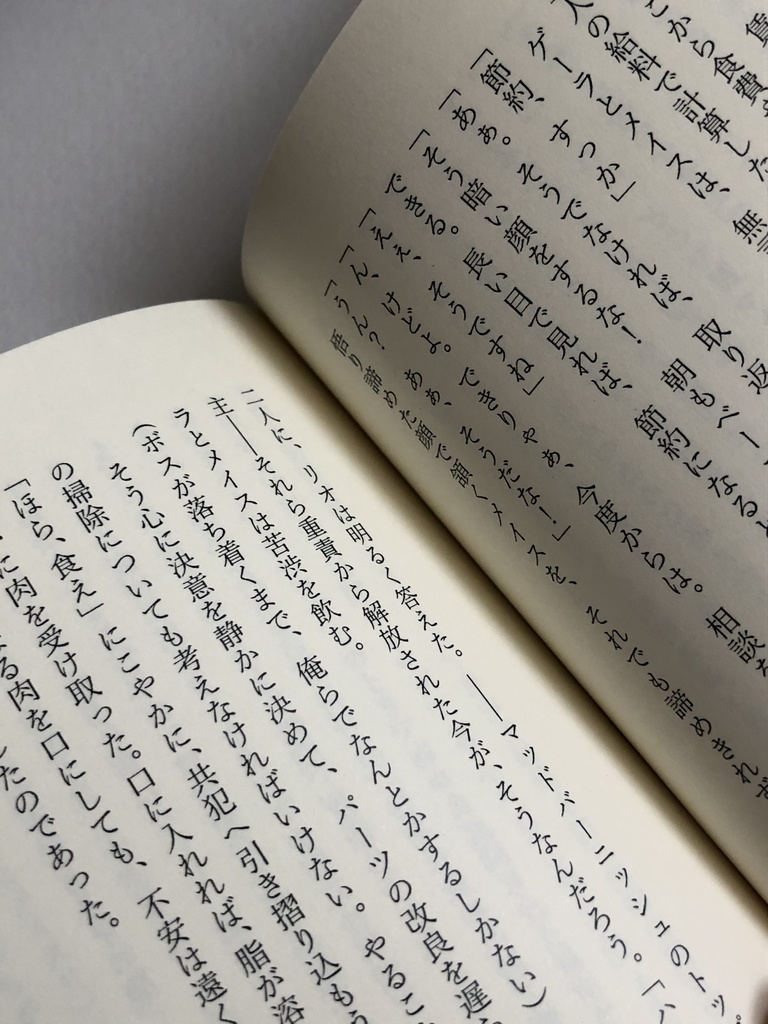 賃
こから食費を
人の給料で計算した
ゲーラとメイスは、無
「節約、すっか」
「あぁ。そうでなければ、取り返
「そう暗い顔をするな！朝もベー
できる。長い目で見れば、節約になると
「ええ、そうですね」
「ん、けどよ。できりゃぁ、今度からは。相談を
「うん？あぁ、そうだな！」
悟り諦めた顔で頷くメイスを、それでも諦めきれず
二人に、リオは明るく答えた。――マッドバーニッシュのトッ
主――それら重責から解放された今が、そうなんだろう。「ハ
ラとメイスは苦渋を飲む。
（ボスが落ち着くまで、俺らでなんとかするしかない）
そう心に決意を静かに決めて、パーツの改良を遅
の掃除についても考えなければいけない。やるこ
「ほら、食え」にこやかに、共犯へ引き摺り込もう
に肉を受け取った。口に入れれば、脂が溶
る肉を口にしても、不安は遠く
たのであった。